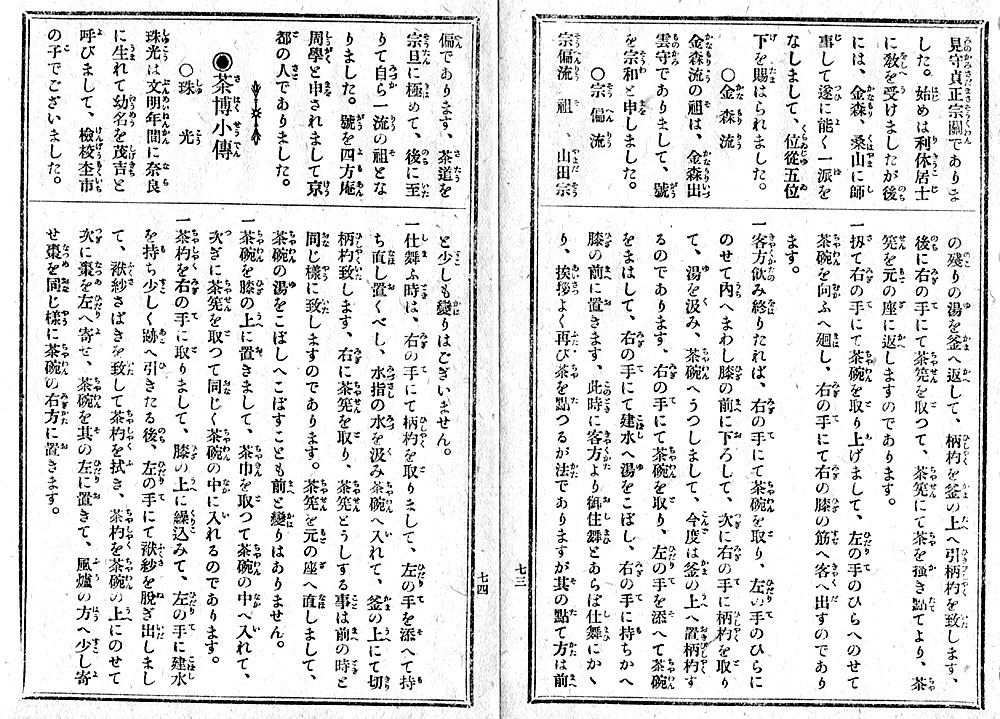 見守貞正宗關でありま
した。始めは利休居士
に敎を受けましたが後
には、金森、桑山に師
事して遂に能く一派を
なしまして、位從五位
下を賜はられました。
○金森流
金森流の祖は、金森出
雲守でありまして、號
を宗和と申しました。
○宗偏流
宗偏流　祖　、山田宗
の殘りの湯を釜へ返して、柄杓を釜の上へ引柄杓を致します、
後に右の手にて茶筅を取つて、茶筅にて茶を强き點てより、茶
筅を元の座に返しますのであります。
一扨て右の手にて茶碗を取り上げまして、左の手のひらへのせて
茶碗を向ふへ廻し、右の手にて右の膝の筋へ客へ出すのであり
ます。
一客方飮み終りたれば、右の手にて茶碗を取り、左の手のひらに
のせて内へまわし膝の前に下ろして、次に右の手に柄杓を取り
て、湯を汲み、茶碗へうつしまして、今度は釜の上へ置柄杓す
るのであります、右の手にて茶碗を取り、左の手を添へて茶碗
をまはして、右の手にて建水へ湯をこぼし、右の手に持ちかへ
膝の前に置きます、此時に客方より御仕舞とあらば仕舞にかゝ
り、挨拶よく再び茶を點つるが法でありますが其の點て方は前
七三
偏であります、茶道を
宗旦に極めて、後に至
りて自ら一流の祖とな
りました。號を四方庵
周學と申されまして京
都の人でありました。
◉茶博小傳
○珠光
珠光は文明年間に奈良
に生れて幼名を茂吉と
呼びまして、檢校杢市
の子でございました。
と少しも變りはございません。
一仕舞ふ時は、右の手にて柄杓を取りまして、左の手を添へて持
ち直し置くべし、水指の水を汲み茶碗へ入れて、釜の上にて切
柄杓致します、右に茶筅を取り、茶筅とうしする事は前の時と
同じ樣に致しますのであります。茶筅を元の座へ直しまして、
茶碗の湯をこぼしへこぼすことも前と變りはありません。
一茶碗を膝の上に置きまして、茶巾を取つて茶碗の中へ入れて、
次ぎに茶筅を取つて同じく茶碗の中に入れるのであります。
一茶杓を右の手に取りまして、膝の上に繰込みて、左の手に建水
を持ち少しく跡へ引きたる後、左の手にて袱紗を脫ぎ出しまし
て、袱紗さばきを致して茶杓を拭き、茶杓を茶碗の上にのせて
次に棗を左へ寄せ、茶碗を其の左に置きて、風爐の方へ少し寄
せ棗を同じ樣に茶碗の右方に置きます。
七四